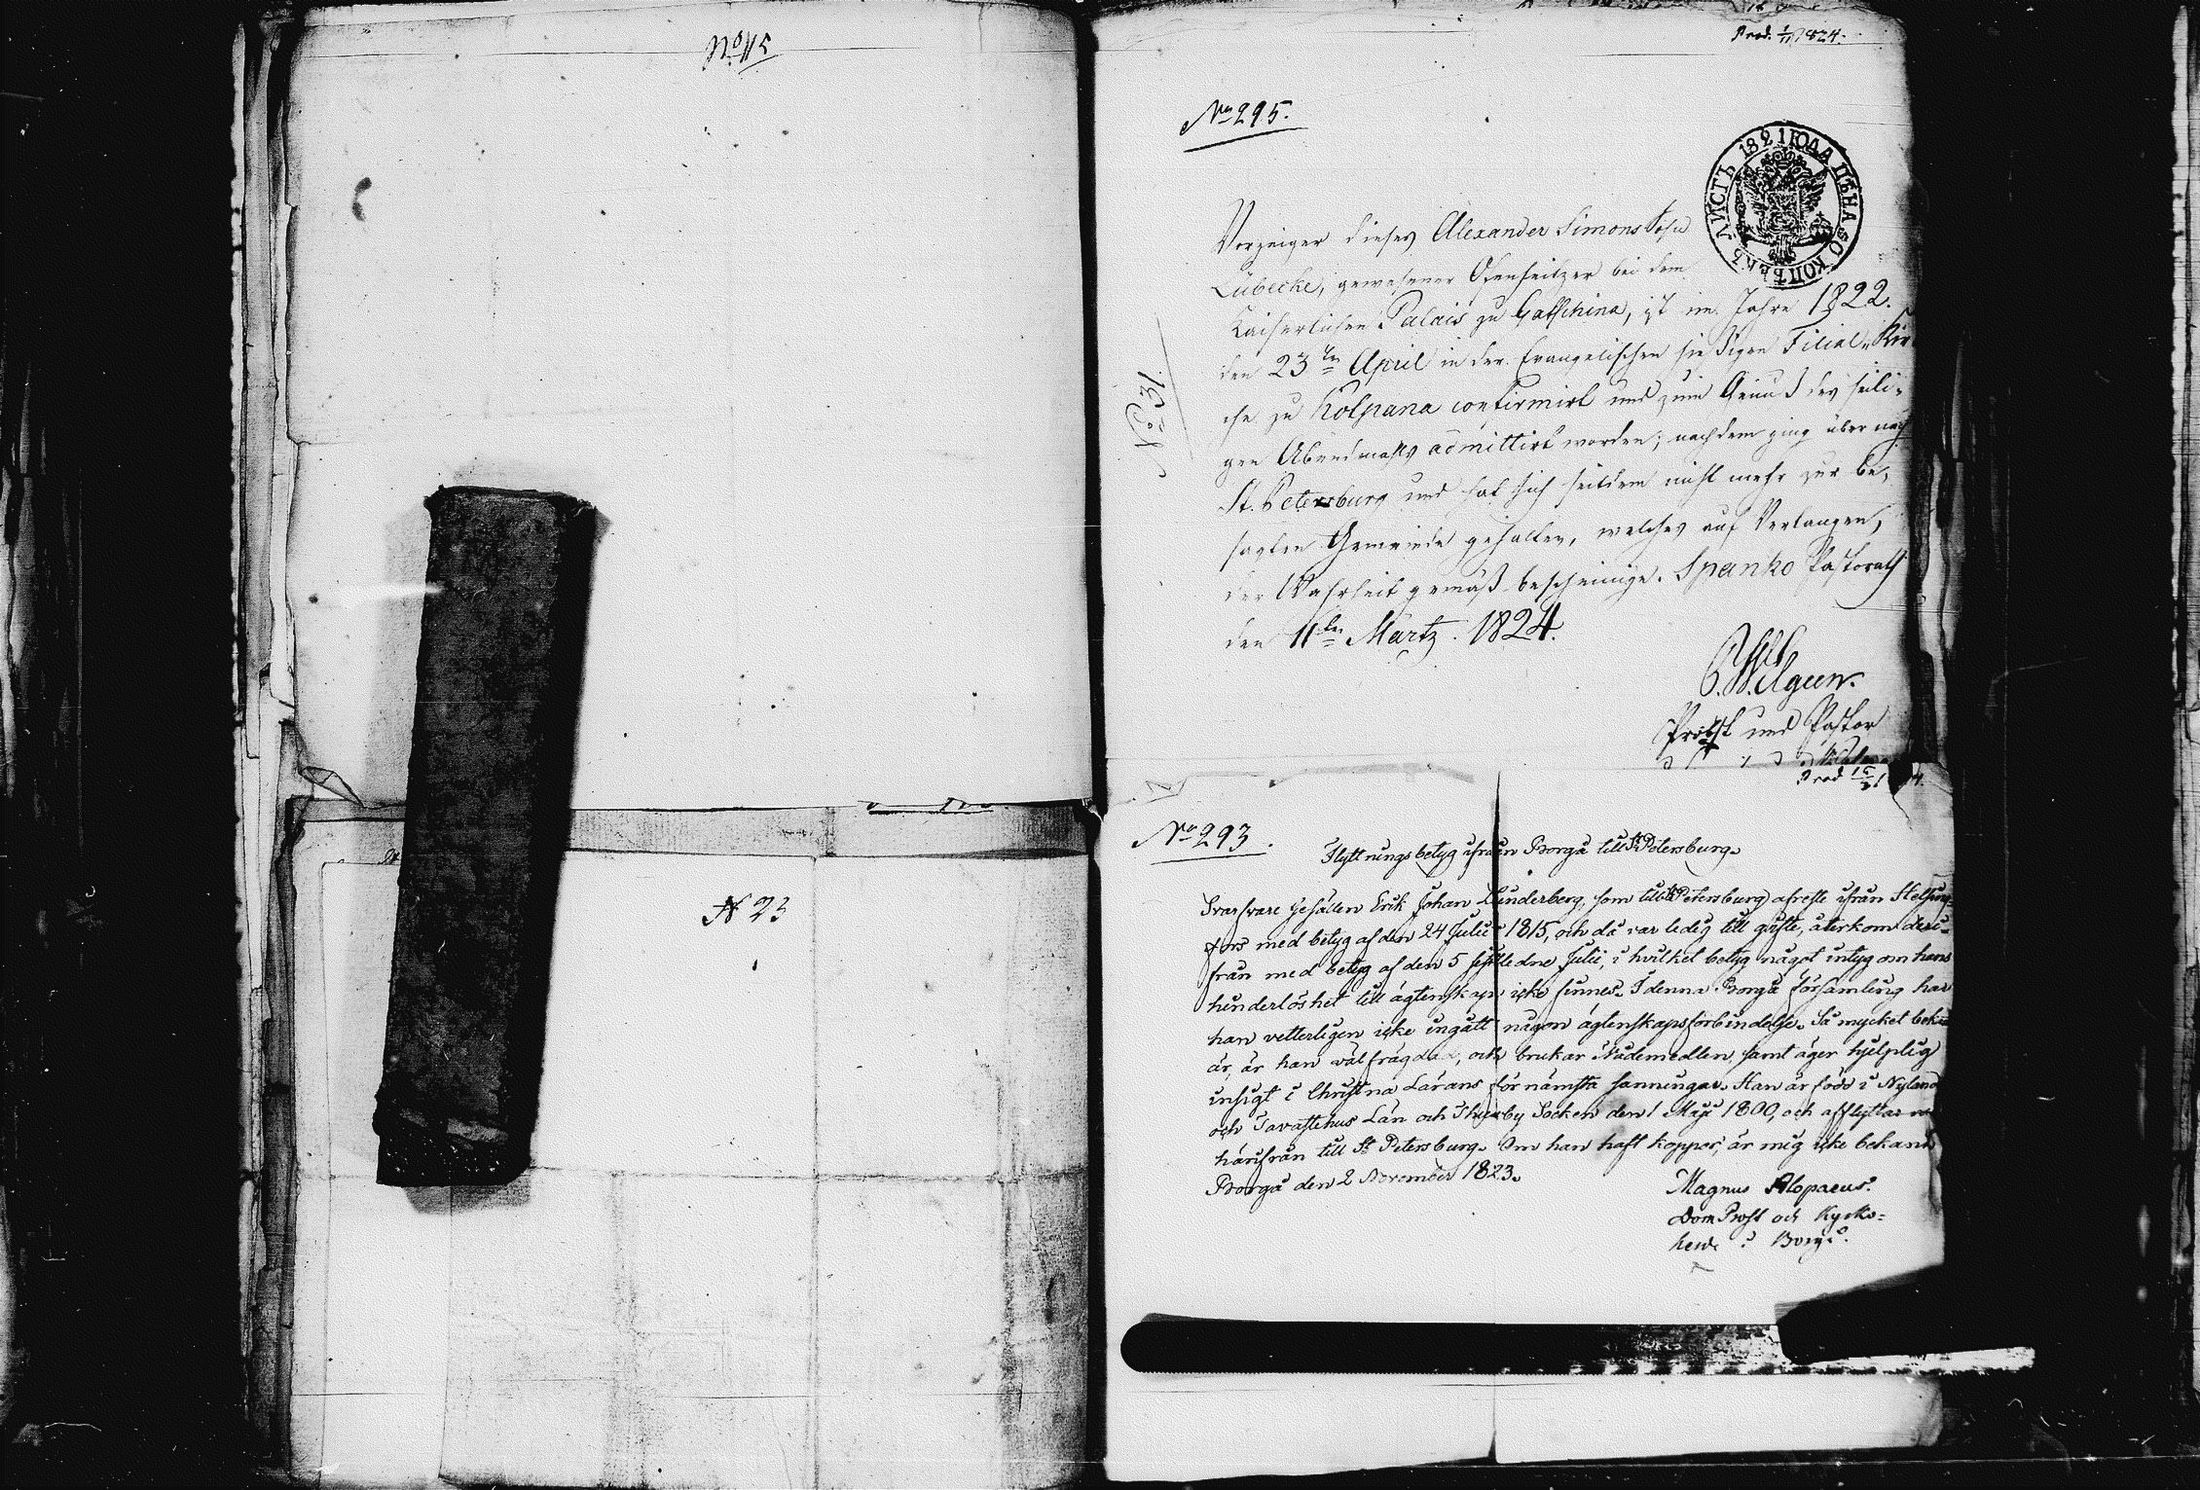 No 115
N 23
Prod. 1/11 1824.
No 295.
ЛИСТЪ 1821 ГОДА ЦѢНА 50 КОПѢЕКЪ
Vorzeiger dieses, Alexander Simons Sohn
Lübecke, gewesener Ofenheitzer bei dem
Kaiserlichen Palais zu Gatschina, ist im Jahre 1822.
den 23ten April in der Evangelischen hiesigen Filial-Kir
che zu Kolpana confirmirt und zum Genuß des heili-
gen Abendmahls admittirt worden; nachdem ging über nach
St. Petersburg und hat sich seitdem nicht mehr zur be-
sagten Gemeinde gehalten, welches auf Verlangen,
der Wahrheit gemäß bescheinige. Spanko Pastorath
den 11ten Martz. 1824.
Probst und Pastor
Prod
No 293.
Flyttningsbetyg ifrån Borgå till St Petersburg.
Svarfvare Gesällen Erik Johan Lunderberg, som till St Petersburg afreste ifrån Helsing-
fors med betyg af den 24 Julii 1815, och då var ledig till gifte, återkom deri-
från med betyg af den 5 sistledne Julii, i hvilket betyg något intyg om hans
hinderlöshet till ägtenskap icke finnes. I denna Borgå församling har
han vetterligen icke ingått någon ägtenskapsförbindelse. Så mycket bekant
är, är han väl frägdad, och brukar Nådemedlen, samt äger hjelplig
insigt i Christna Lärans förnämsta sanningar. Han är född i Nylands
och Tavastehus Län och Thusby Socken den 1 Maji 1800, och afflyttar nu
härifrån till St Petersburg. Om han haft koppor, är mig icke bekant
Borgå den 2 November 1823.
Magnus Alopaeus.
Dom Prost och Kyrko-
herde i Borgå.